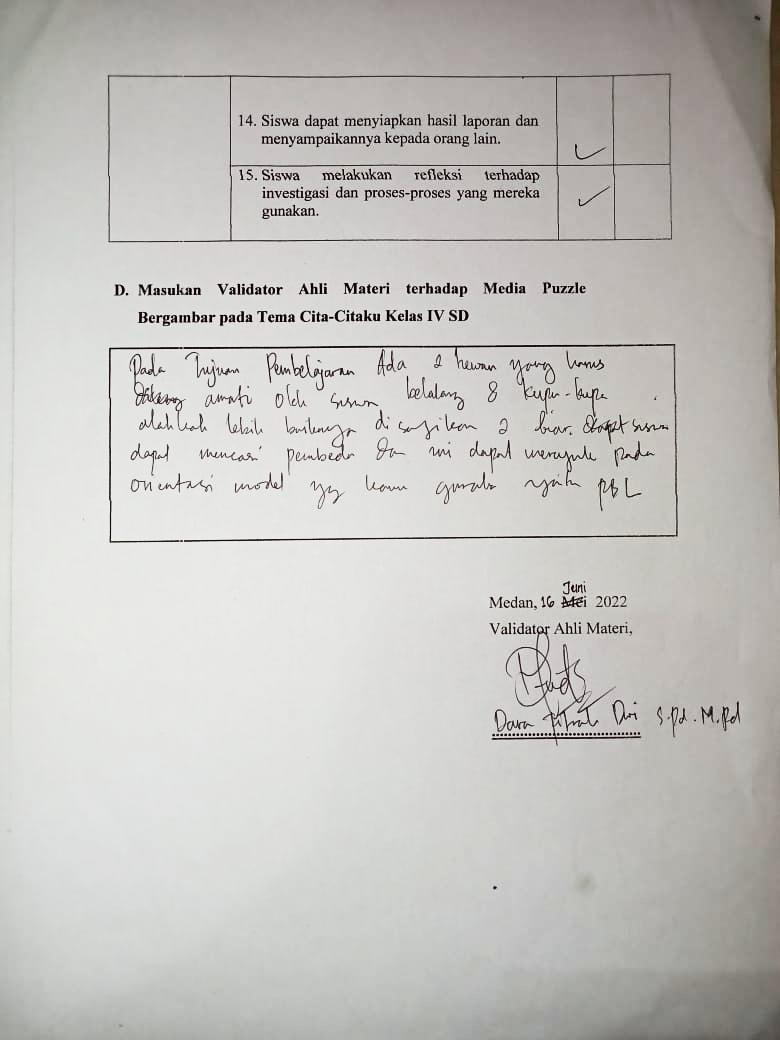 14. Siswa dapat menyiapkan hasil laporan dan
menyampaikannya kepada orang lain.
15. Siswa melakukan refleksi terhadap
investigasi dan proses-proses yang mereka
gunakan.
D. Masukan Validator Ahli Materi terhadap Media Puzzle
Bergambar pada Tema Cita-Citaku Kelas IV SD
Pada Tujuan Pembelajaran Ada 2 hewan yang harus
amati oleh siswa belalang & kupu-kupu
alahkah lebih baiknya disajikan 2 biar siswa
dapat mencari pembeda dan ini dapat merujuk pada
orientasi model yg kamu gunakan yaitu PBL
Juni
Medan, 16 Mei 2022
Validator Ahli Materi,
Dara Fitrah Dwi S.Pd. M.Pd